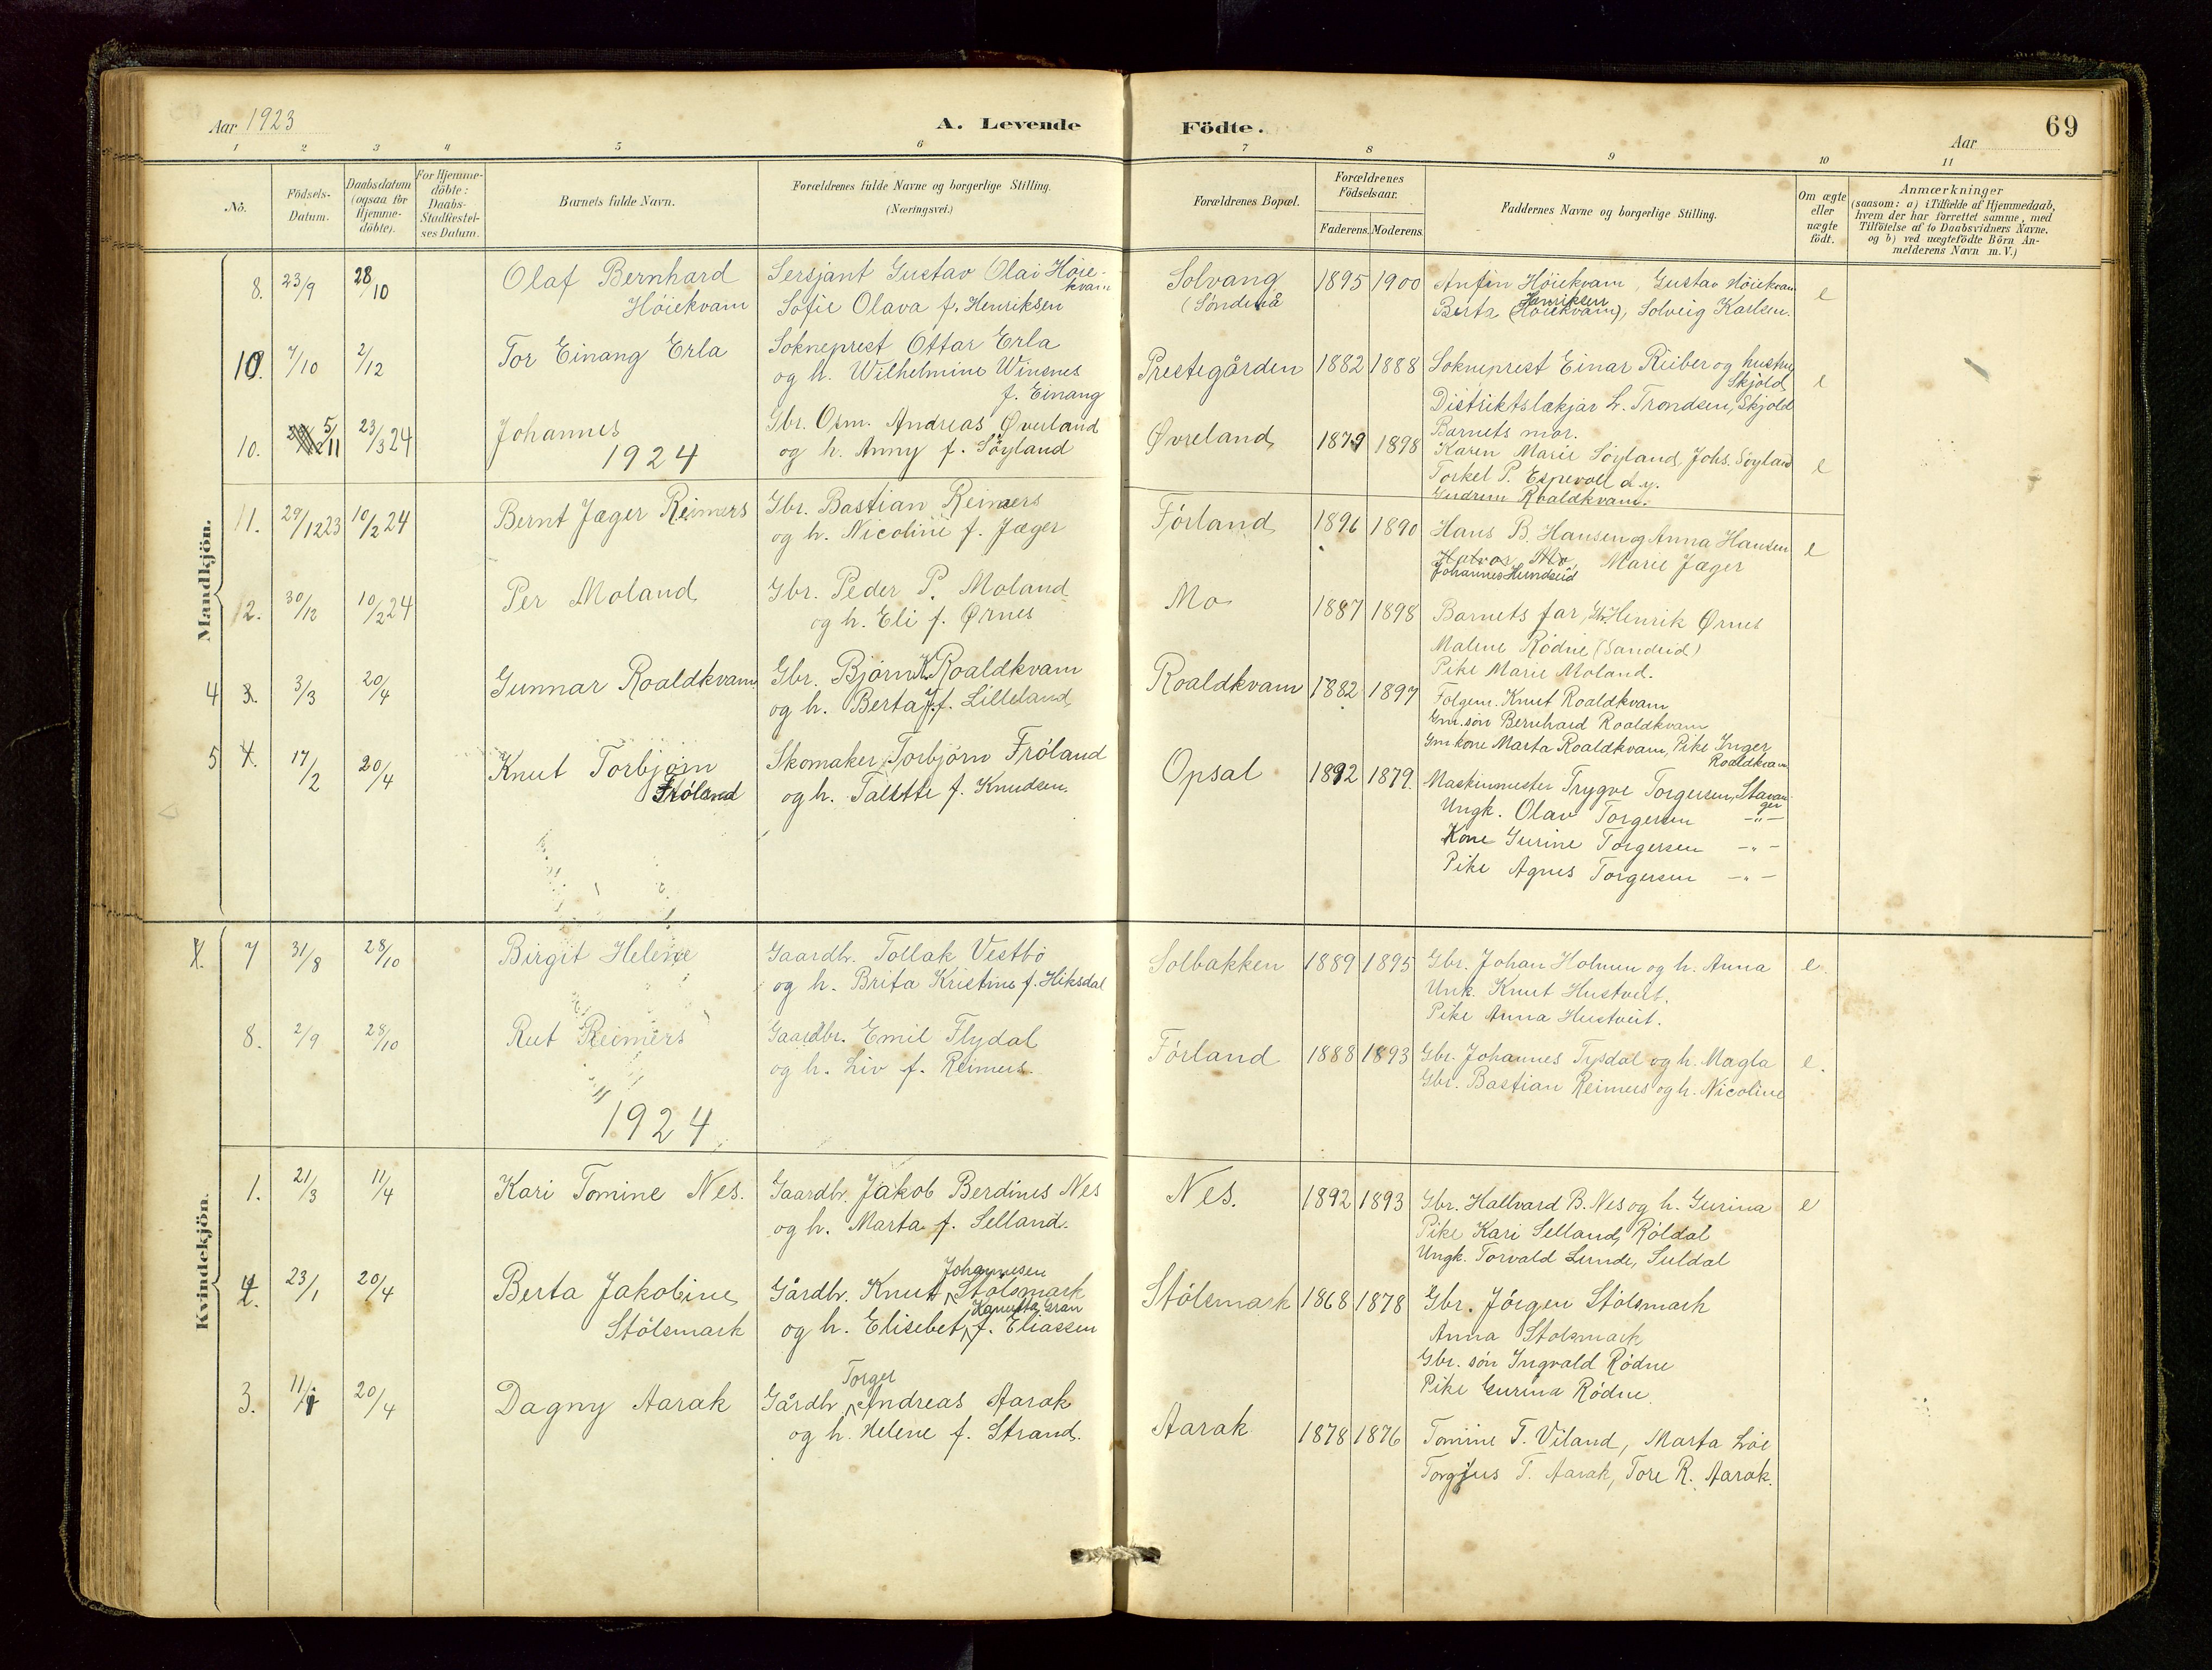 Aar 1923
A. Levende Födte.
Aar
69
1 2 3 4 5 6 7 8 9 10 11
No.
Födsels-Datum.
Daabsdatum (ogsaa for Hjemme-döbte).
For Hjemme-döbte: Daabs-Stadfæstel-ses Datum.
Barnets fulde Navn.
Forældrenes fulde Navne og borgerlige Stilling.
(Næringsvei.)
Forældrenes Bopæl.
Forældrenes Födselsaar.
Faderens. Moderens.
Faddernes Navne og borgerlige Stilling.
Om ægte eller uægte födt.
Anmærkninger
(saasom: a) i Tilfælde af Hjemmedaab,
hvem der har forrettet samme, med
Tilföielse af to Daabsvidners Navne.
og b) ved uægtefödte Börn An-
melderens Navn m.V.)
Mandkjön.
8. 23/9 28/10 Olaf Bernhard Höiekvam
Sersjant Gustav Olai Höiekvam
Sofie Olava f. Henriksen
Solvang
(Söndenå
1895 1900
Anfin Höiekvam, Gustav Höiekvam
Berta Henriksen (Höiekvam), Solveig Karlsen.
e
10. 7/10 2/12 Tor Einang Erla
Sokneprest Ottar Erla
og h. Wilhelmine Winsnes
f. Einang
Prestegården 1882 1888
Sokneprest Einar Reiber og hustru
Skjold
Distriktslækjar L. Trondsen, Skjold
Barnets mor.
e
10. 5/11 23/3 24 Johannes
1924
Gbr. Osm. Andreas Øverland
og h. Anny f. Söyland
Øvreland 1879 1898
Karen Marie Söyland, Johs. Söyland
Torkel P. Espevoll d.y.
Gudrun Roaldkvam.
e
11. 29/12 23 10/2 24 Bernt Jæger Reimers
Gbr. Bastian Reimers
og h. Nicoline f. Jæger
Förland 1896 1890
Hans B. Hansen og Anna Hansen
Halvor Mo, Marie Jæger
Johannes Hundseid
e
12. 30/12 10/2 24 Per Moland
Gbr. Peder P. Moland
og h. Eli f. Ørnes
Mo 1887 1898
Barnets far, Gbr. Henrik Ørnes
Malene Rödne (Sandeid)
Pike Marie Moland.
4 3. 3/3 20/4 Gunnar Roaldkvam
Gbr. Bjørn K. Roaldkvam
og h. Berta J. f. Lilleland
Roaldkvam 1882 1897
Folgem. Knut Roaldkvam
Gm. sön Bernhard Roaldkvam
Gm kone Marta Roaldkvam, Pike Inger
Roaldkvam
5 4. 17/2 20/4 Knut Torbjörn
Fröland
Skomaker Torbjörn Fröland
og h. Talette f. Knudsen.
Opsal 1892 1879.
Maskinmester Trygve Torgersen, Stavanger
Ungk. Olav Torgersen -"-
Kone Gurine Torgersen -"-
Pike Agnes Torgersen -"-
Kvindekjön.
7 31/8 28/10 Birgit Helene
Gaardbr. Tollak Vestbö
og h. Brita Kristine f. Hiksdal
Solbakken 1889 1895
Gbr. Johan Holmen og h. Anna
Unk. Knut Hustveit.
Pike Anna Hustveit.
e.
8. 2/9 28/10 Rut Reimers
Gaardbr. Emil Flydal
og h. Liv f. Reimers.
Förland 1888 1893
Gbr. Johannes Tysdal og h. Magla
Gbr. Bastian Reimers og h. Nicoline
e.
1924
1. 21/3 11/4 Kari Tomine Nes.
Gaardbr. Jakob Berdines Nes
og h. Marta f. Selland.
Nes. 1892 1893
Gbr. Hallvard B. Nes og h. Gurina
Pike Kari Selland, Röldal
Ungk. Torvald Lunde, Suldal
e
2. 23/1 20/4 Berta Jakobine
Stölsmark
Gårdbr. Knut Johannesen Stölsmark
og h. Elisebet Kanutta Gran f. Eliassen
Stölsmark 1868 1878
Gbr. Jörgen Stölsmark
Anna Stolsmark
Gbr. sön Ingvald Rödne
Pike Gurina Rödne
3. 11/1 20/4 Dagny Aarak
Gårdbr. Torger Andreas Aarak
og h. Helene f. Strand.
Aarak 1878 1876
Tomine T. Viland, Marta Löe
Torgjus T. Aarak, Tore R. Aarak.